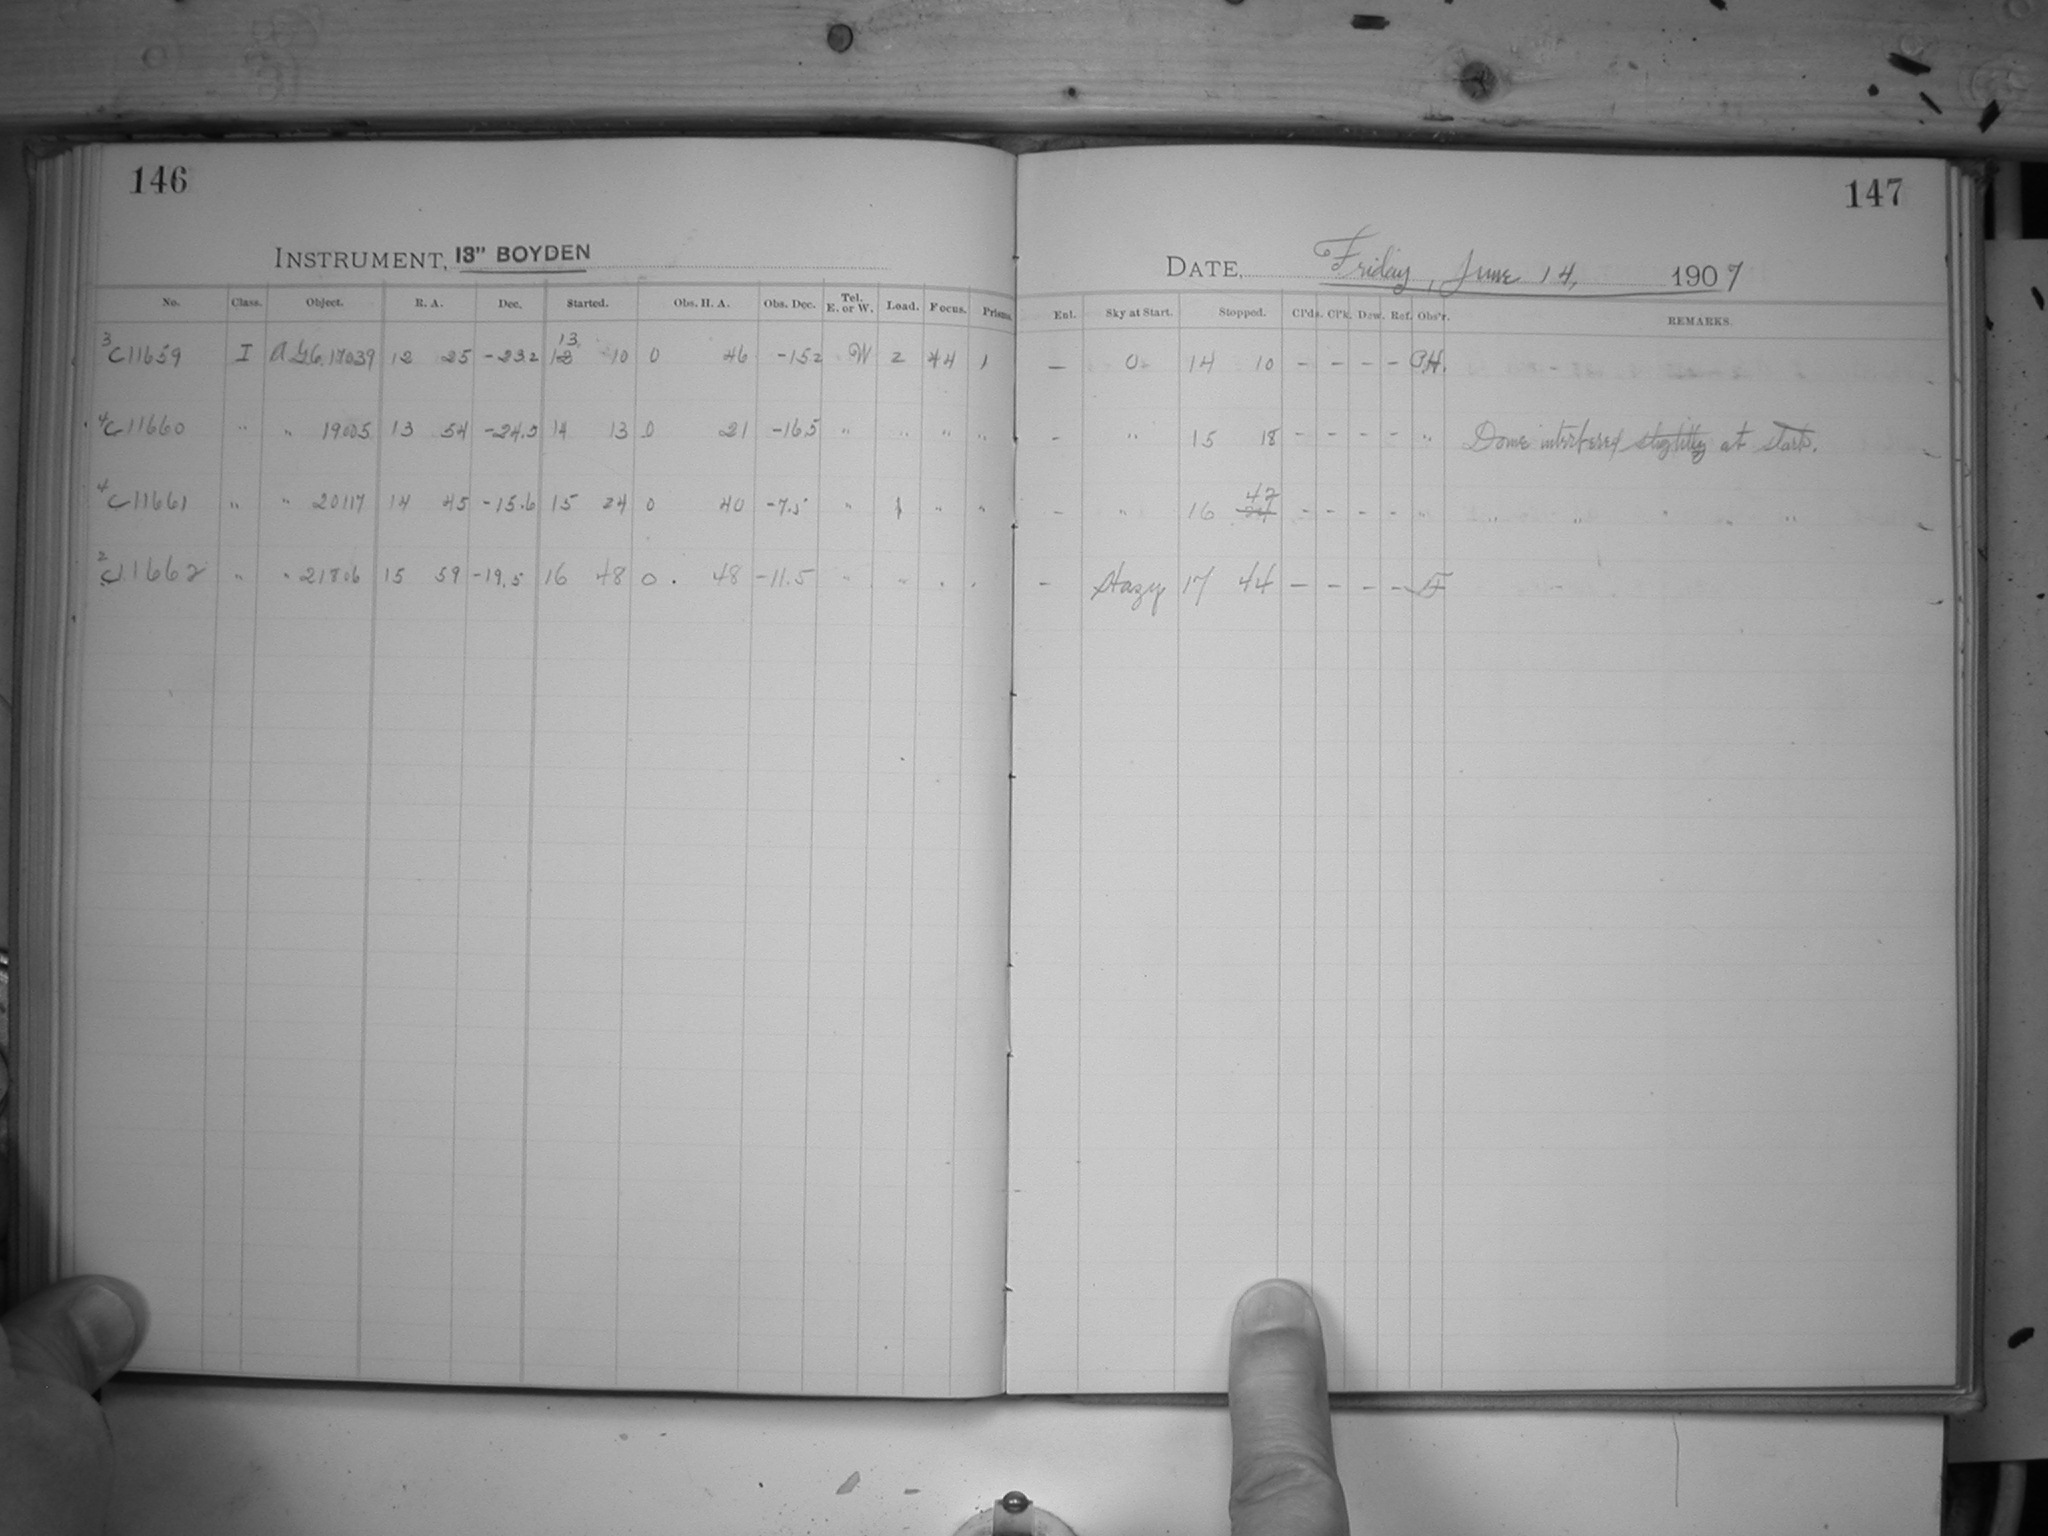 146
INSTRUMENT, 13" BOYDEN
No. Class. Object. R. A. Dec. Started. Obs. H. A. Obs. Dec. Tel. E. or W. Load. Focus. Prisms.
3 C11659 I A.G.C. 17039 12 25 -23.2 13 10 0 46 -15.2 W 2 44 1
4 C11660 " " 19005 13 54 -24.5 14 13 0 21 -16.5 " " " "
4 C11661 " " 20117 14 45 -15.6 15 24 0 40 -7.5 " 1 " "
2 C11662 " " 21806 15 59 -19.5 16 48 0 48 -11.5 " " " "
147
DATE, Friday, June 14, 1907
Enl. Sky at Start. Stopped. Cl'ds. Cl'k. Dew. Ref. Obs'r. REMARKS.
— 0 14 10 - - - - P.H.
- " 15 18 - - - - " Dome interfered slightly at start.
- " 16 47 - - - - " " " " " "
- Hazy 17 44 - - - -